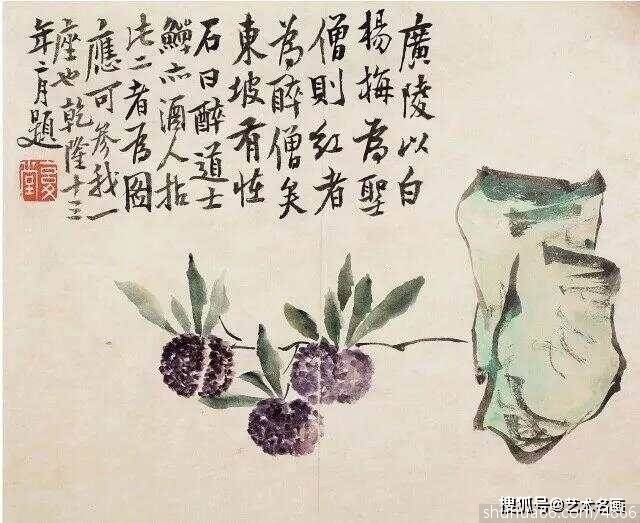 廣陵以白
楊梅為聖
僧則紅者
為醉僧矣
東坡有怪
石曰醉道士
鱓亦酒人拈
此二者爲圖
應可參我一
座也乾隆十三
年二月題
复堂
搜狐号@艺术名画